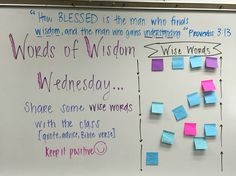 "How BLESSED is the man who finds
wisdom, and the man who gains understanding." Proverbs 3:13
Words of Wisdom
Wednesday...
Share some wise words
with the class
[quote, advise, Bible verse]
Keep it positive
Wise Words